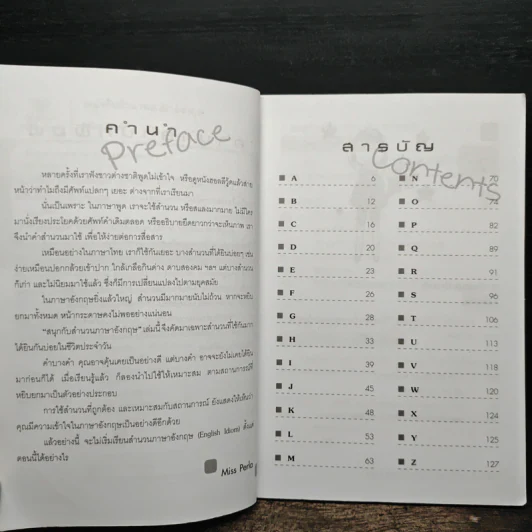 คำนำ
Preface
หลายครั้งที่เราฟังชาวต่างชาติพูดไม่เข้าใจ หรือดูหนังฮอลลีวู้ดแล้วสาย
หน้าว่าทำไมถึงมีศัพท์แปลกๆ เยอะ ต่างจากที่เราเรียนมา
นั่นเป็นเพราะ ในภาษาพูด เราจะใช้สำนวน หรือสแลงมากมาย ไม่มีใคร
มานั่งเรียงประโยคด้วยศัพท์คำเดิมตลอด หรืออธิบายยืดยาวกว่าจะเห็นภาพ เรา
จึงนำคำสำนวนมาใช้ เพื่อให้ง่ายต่อการสื่อสาร
เหมือนอย่างในภาษาไทย เราก็ใช้กันเยอะ บางสำนวนที่ได้ยินบ่อยๆ เช่น
ง่ายเหมือนปอกกล้วยเข้าปาก ใกล้เกลือกินด่าง ตาบอดสองคม ฯลฯ แต่บางสำนวน
ก็เก่า และไม่นิยมมาใช้แล้ว ซึ่งก็มีการเปลี่ยนแปลงไปตามยุคสมัย
ในภาษาอังกฤษยิ่งแล้วใหญ่ สำนวนมีมากมายนับไม่ถ้วน หากจะหยิบ
ยกมาทั้งหมด หน้ากระดาษคงไม่พออย่างแน่นอน
"สนุกกับสำนวนภาษาอังกฤษ" เล่มนี้ จึงคัดมาเฉพาะสำนวนที่ใช้กันมาก
ได้ยินกันบ่อยในชีวิตประจำวัน
คำบางคำ คุณอาจคุ้นเคยเป็นอย่างดี แต่บางคำ อาจจะยังไม่เคยได้ยิน
มาก่อนก็ได้ เมื่อเรียนรู้แล้ว ก็ลองนำไปใช้ให้เหมาะสม ตามสถานการณ์ที่
หยิบยกมาเป็นตัวอย่างประกอบ
การใช้สำนวนที่ถูกต้อง และเหมาะสมกับสถานการณ์ ยังแสดงให้เห็นว่า
คุณมีความเข้าใจในภาษาอังกฤษเป็นอย่างดีอีกด้วย
แล้วอย่างนี้ จะไม่เริ่มเรียนสำนวนภาษาอังกฤษ (English Idiom) ตั้งแต่
ตอนนี้ได้อย่างไร
Miss Perla
สารบัญ
Contents
A 6
B 12
C 16
D 20
E 23
F 26
G 28
H 33
I 39
J 45
K 48
L 53
M 63
N 70
O 74
P 82
Q 89
R 91
S 96
T 106
U 113
V 118
W 120
X 124
Y 125
Z 127